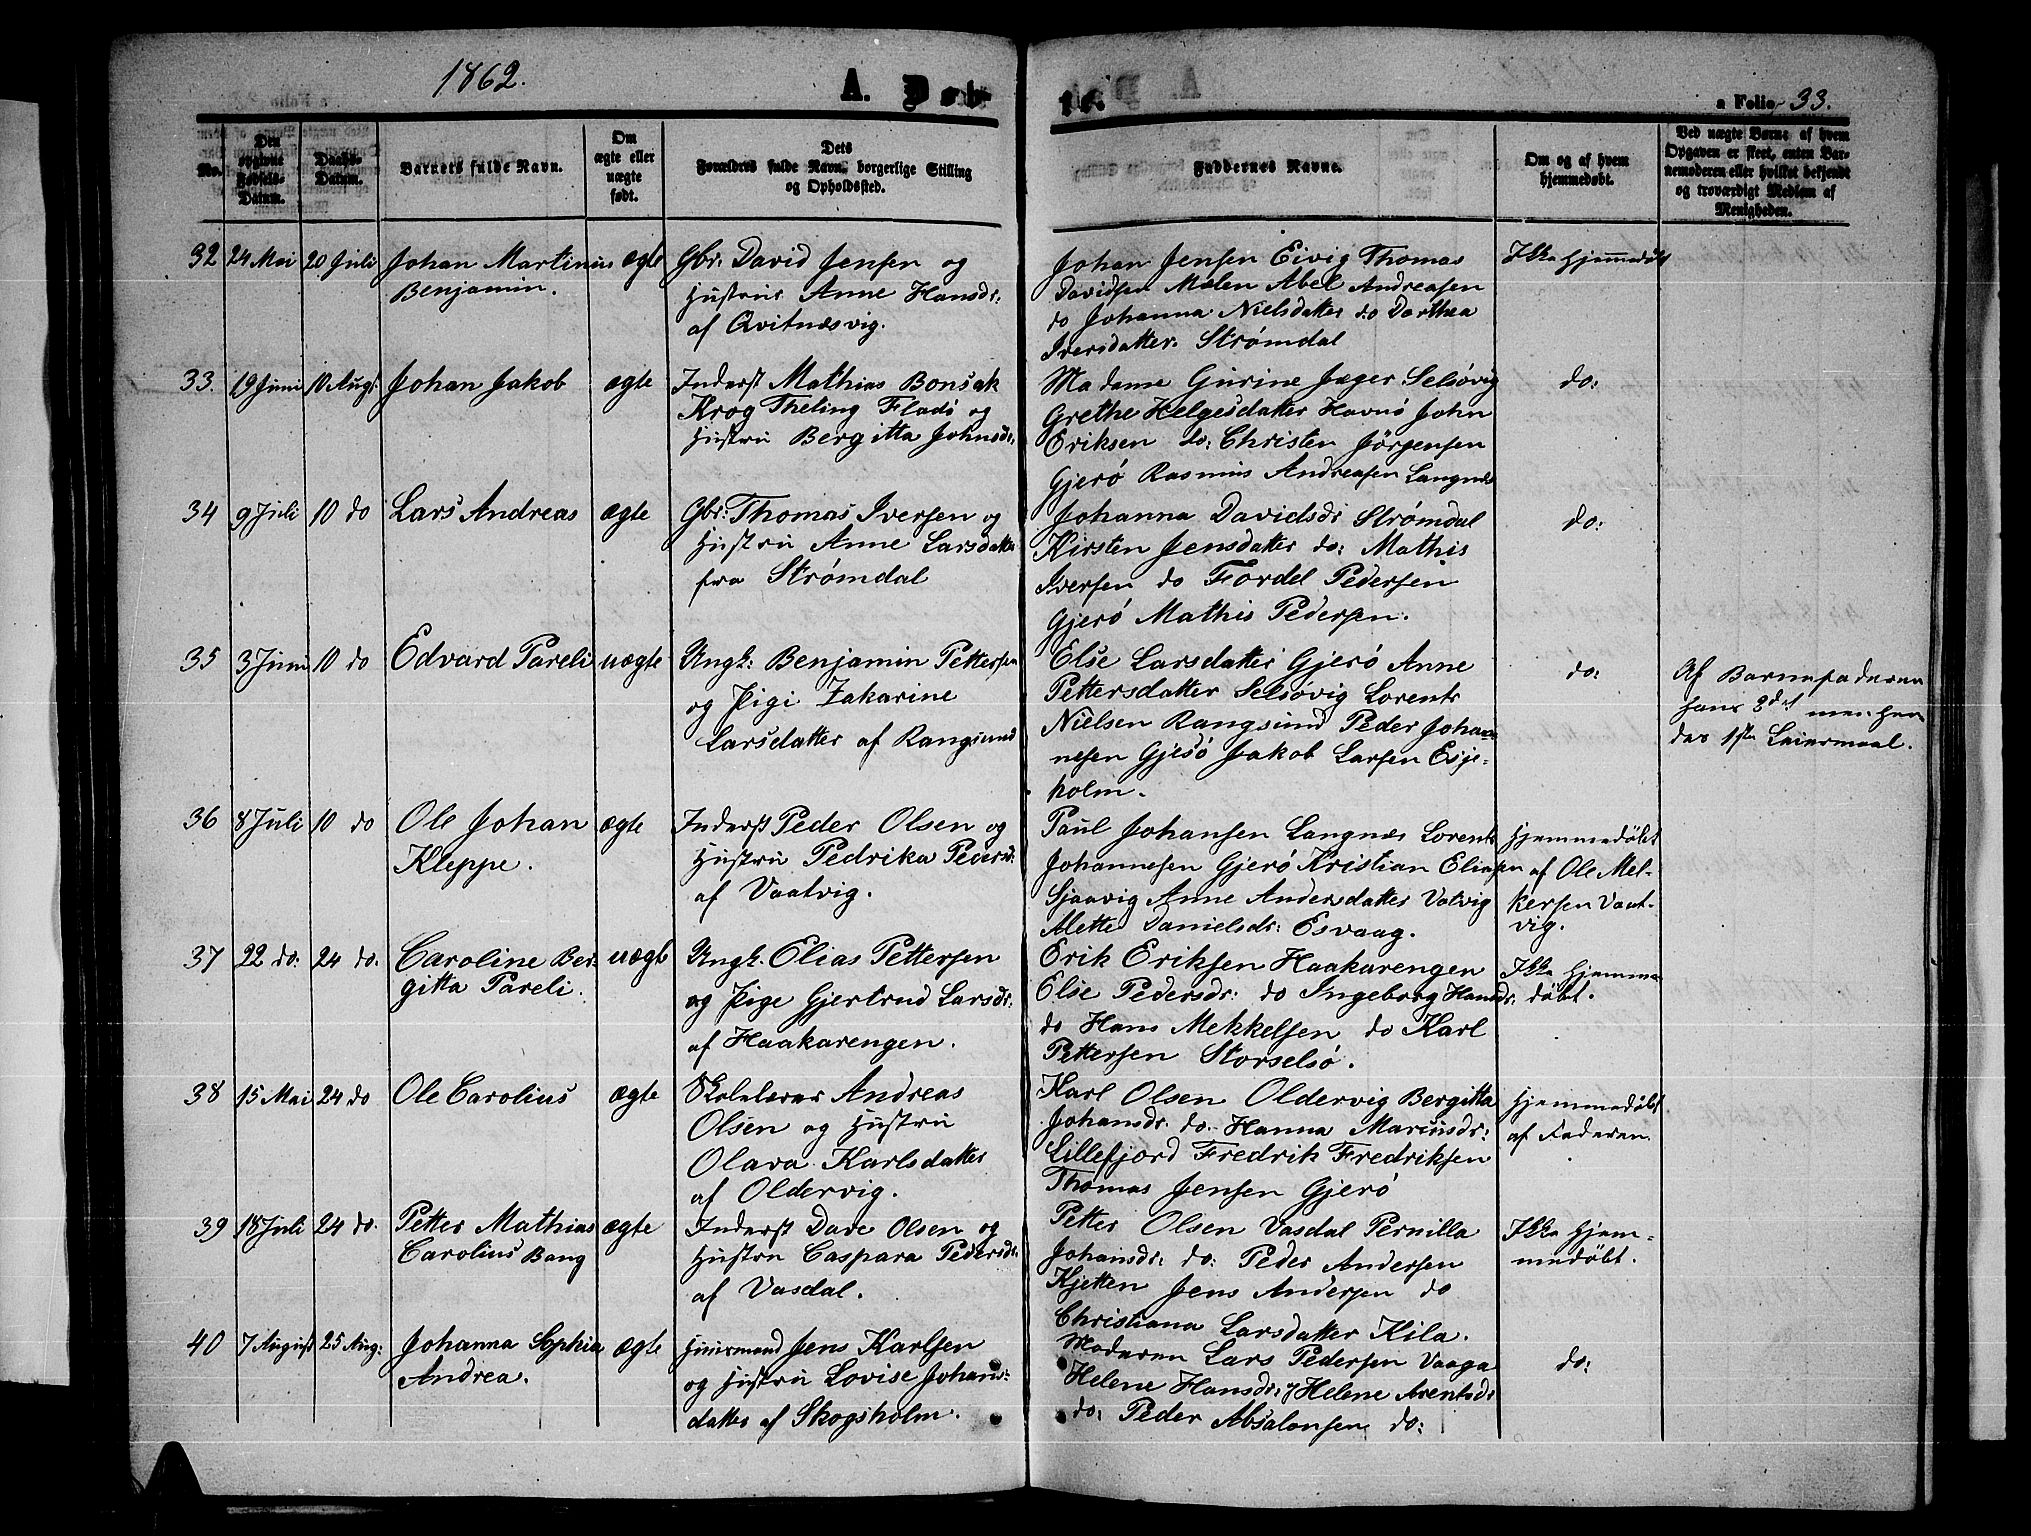 1862.
A. Døb-
te.
a Folio 33.
No.
Den opgivne Fødsels-Datum.
Daabs-Datum.
Barnets fulde Navn.
Om ægte eller uægte født.
Dets Forældres fulde Navn, borgerlige Stilling og Opholdssted.
Faddernes Navne.
Om og af hvem hjemmedøbt.
Ved uægte Børne af hvem Opgaven er skeet, enten Barnemoderen eller hvilket bekjendt og troværdigt Medlem af Menigheden.
32 24 Mai 20 Juli Johan Martinus ægte Gbr: David Jensen og
Benjamin. Hustrue Anne Hansdr:
af Qvitnæsvig.
Johan Jensen Eivig Thomas Ikke hjemmedøbt
Davidsen Mølen Abel Andreasen
do Johanna Nielsdatter do Dorthea
Iversdatter. Strømdal
33. 19 Juni 10 Aug: Johan Jakob ægte Inderst Mathias Bonsak
Krog Theling Fladø og
Hustru Bergitta Johnsdr:
Madame Gurine Jæger Selsøvig do:
Grethe Helgesdatter Havnø John
Eriksen do: Christen Jörgensen
Gjerö Rasmus Andreasen Langnæs
34 9 Juli 10 do Lars Andreas ægte Gbr: Thomas Iversen og
Hustru Anne Larsdatter
fra Strømdal
Johanna Davidsdr Strømdal do:
Kirsten Jensdatter do: Mathis
Iversen do Fordel Pedersen
Gjerö Mathis Pedersen.
35 3 Juni 10 do Edvard Pareli uægte Ungk: Benjamin Pettersen
og Pigi Zakarine
Larsdatter af Rangsund
Else Larsdatter Gjerö Anne do: Af Barnefaderen
Pettersdatter Selsøvig Lorents hans 2det men hen
Nielsen Rangsund Peder Johan- des 1ste Leiermaal.
nesen Gjesö Jakob Larsen Esje-
holm.
36 8 Juli 10 do Ole Johan ægte Inderst Peder Olsen og
Kleppe. Hustru Pedrika Pedersdr:
af Vaatvig.
Paul Johansen Langnæs Lorents Hjemmedöbt
Johannesen Gjerö Kristian Eliasen af Ole Mel-
Sjaavig Anne Andersdatter Vatvig kersen Vaat-
Mette Danielsdr: Esvaag. vig.
37 22 do: 24 do. Caroline Ber- uægte Ungk. Elias Pettersen
gitta Pareli. og Pige Gjertrud Larsdr:
af Haakarengen.
Erik Eriksen Haakarengen Ikke Hjemme
Else Pedersdr: do Ingeborg Hansdr: döbt.
do Hans Mekkelsen do Karl
Pettersen Storselsö.
38 15 Mai 24 do Ole Carolius ægte Skolelærer Andreas
Olsen og Hustru
Olava Karlsdatter
af Oldervig.
Karl Olsen Oldervig Bergitta Hjemmedöbt
Johansdr. do. Hanna Mariusdr: af Faderen.
Lillefjord Fredrik Fredriksen
Thomas Jensen Gjerö
39 18 Juli 24 do. Petter Mathias ægte Inderst Dave Olsen og
Carolius Bang Hustru Caspara Pedersdr:
af Vasdal.
Petter Olsen Vasdal Pernilla Ikke Hjem-
Johansdr: do: Peder Andersen medöbt.
Kjetten Jens Andersen do
Christiana Larsdatter Kila.
40 7 August 25 Aug: Johanna Sophia ægte Huusmand Jens Karlsen
Andrea. og Hustru Lovise Johans-
datter af Skogsholm.
Moderen Lars Pedersen Vaaga do:
Helene Hansdr: Helene Arentsdr
do: Peder Absalonsen do: